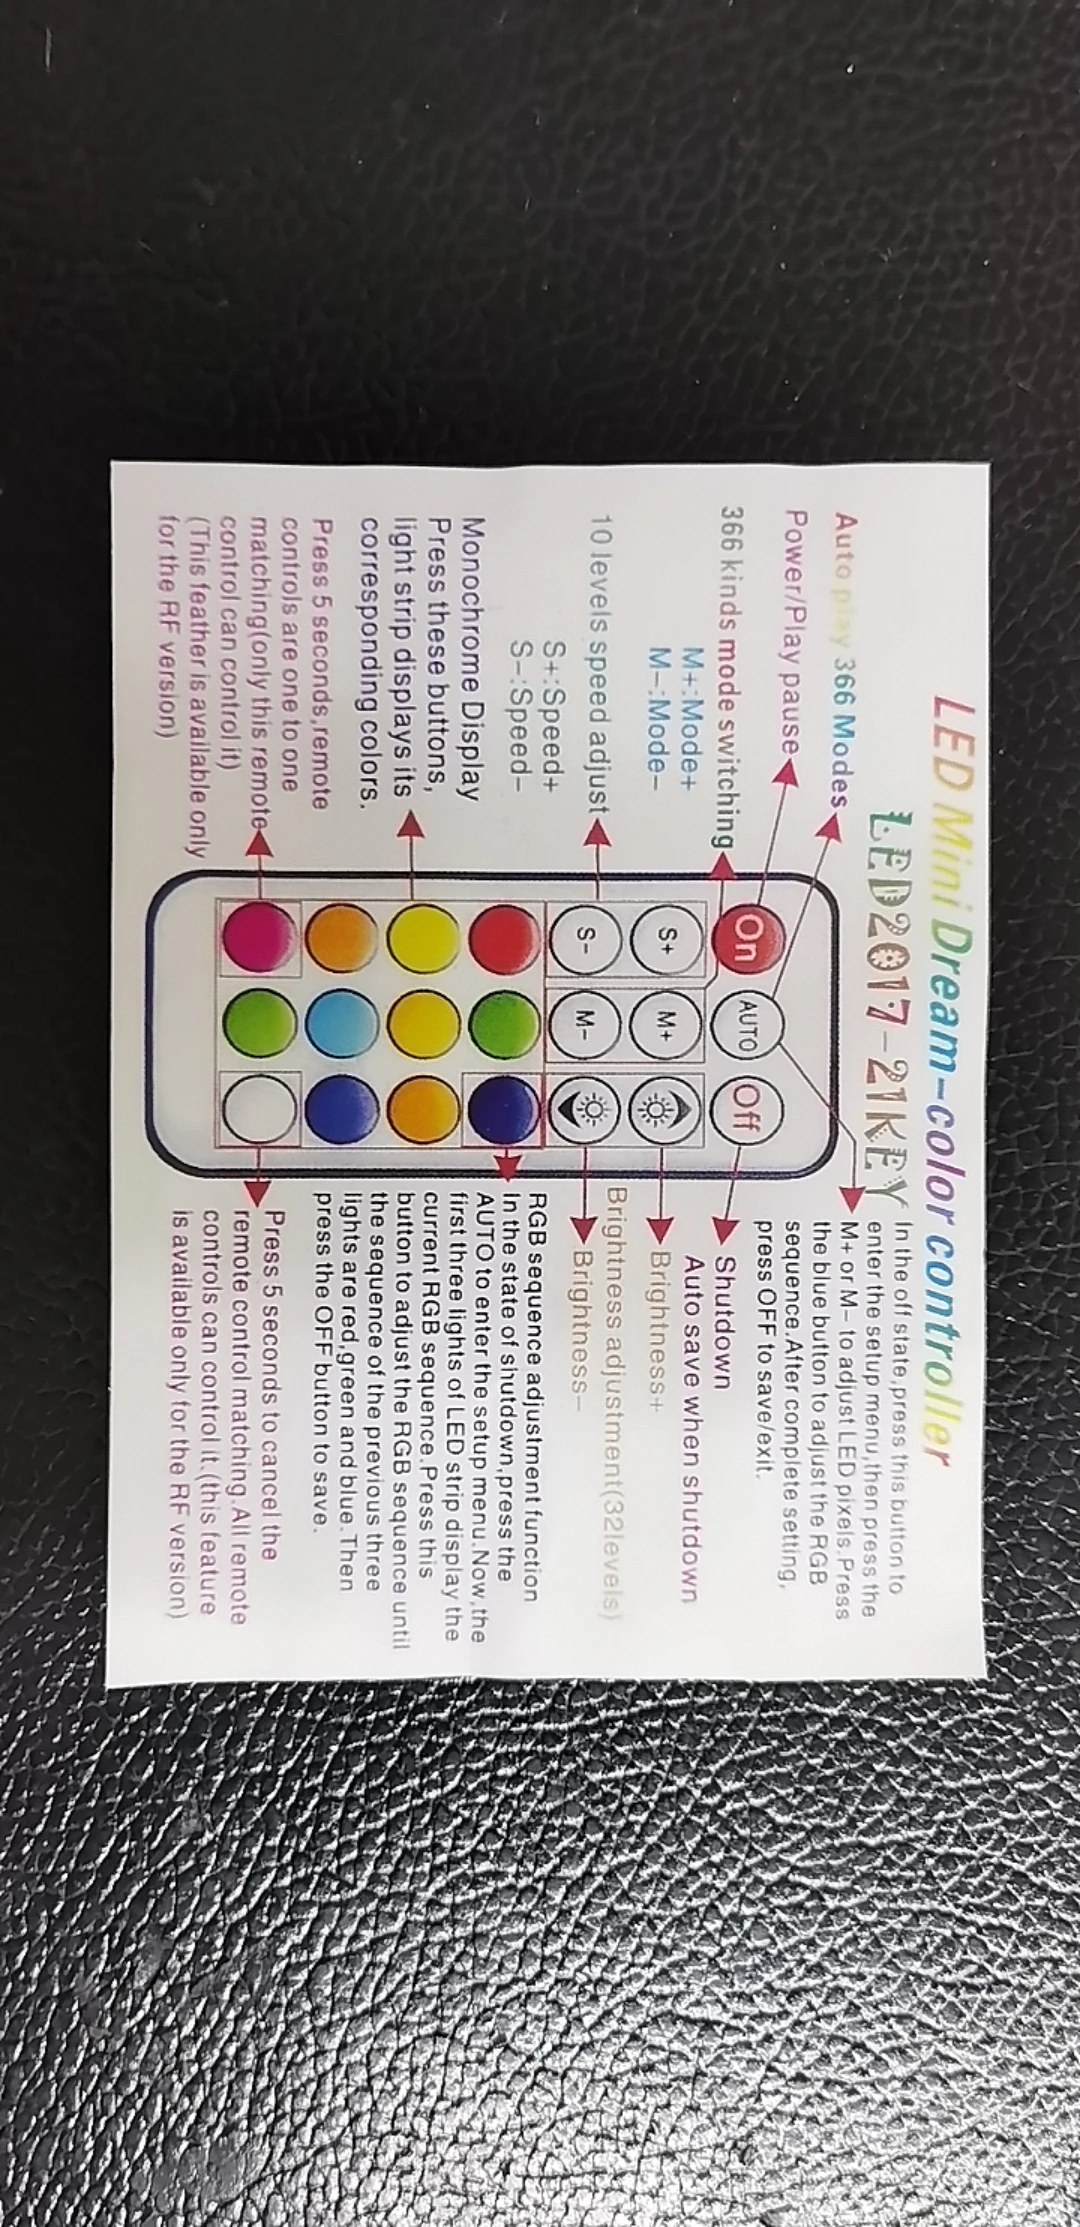 LED Mini Dream-color controller
LED2017-21KEY
Auto play 366 Modes
Power/Play pause
366 kinds mode switching
M+:Mode+
M-:Mode-
10 levels speed adjust
S+:Speed+
S-:Speed-
Monochrome Display
Press these buttons,
light strip displays its
corresponding colors.
Press 5 seconds,remote
controls are one to one
matching(only this remote
control can control it)
(This feather is available only
for the RF version)
On AUTO Off
S+ M+
S- M-
In the off state,press this button to
enter the setup menu,then press the
M+ or M- to adjust LED pixels.Press
the blue button to adjust the RGB
sequence.After complete setting,
press OFF to save/exit.
Shutdown
Auto save when shutdown
Brightness+
Brightness adjustment(32levels)
Brightness-
RGB sequence adjustment function
In the state of shutdown,press the
AUTO to enter the setup menu.Now,the
first three lights of LED strip display the
current RGB sequence.Press this
button to adjust the RGB sequence until
the sequence of the previous three
lights are red,green and blue.Then
press the OFF button to save.
Press 5 seconds to cancel the
remote control matching.All remote
controls can control it.(this feature
is available only for the RF version)